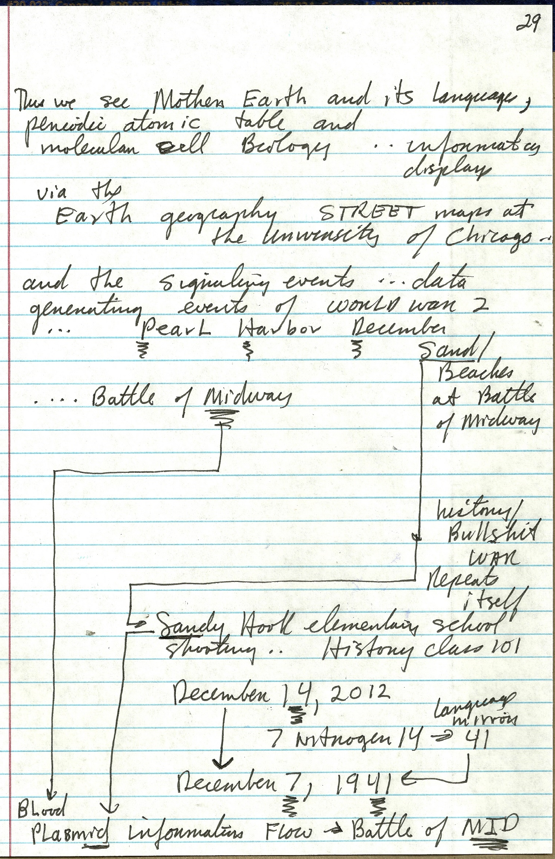 29
Thus we see Mother Earth and its languages,
periodic atomic table and
molecular cell Biology .. informatics
display
via the
Earth geography STREET maps at
the University of Chicago..
and the signaling events ... data
generating events of WORLD WAR 2
... Pearl Harbor December
Sand/
Beaches
at Battle
of Midway
.... Battle of Midway
history/
Bullshit
WAR
Repeats
itself
Sandy Hook elementary school
shooting .. History class 101
December 14, 2012
Language
mirror
7 Nitrogen 14 → 41
December 7, 1941
Blood
Plasmid information Flow → Battle of MID